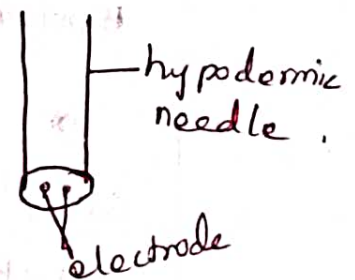 hypodermic
needle.
electrode